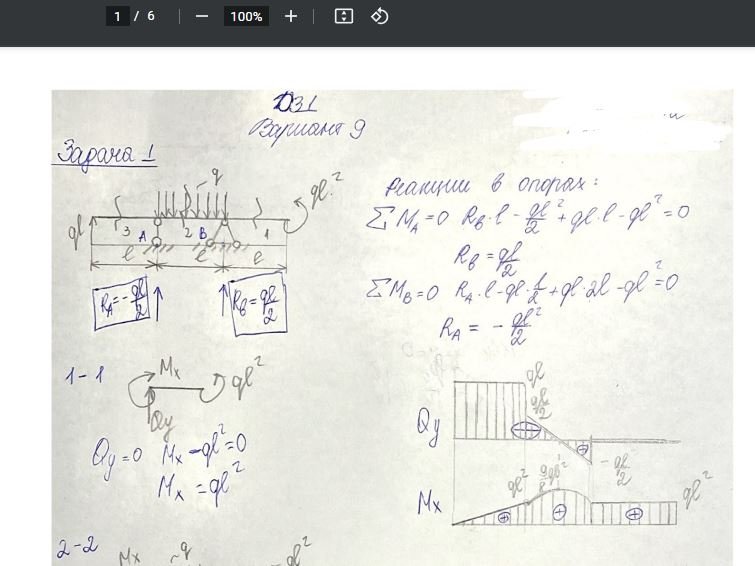 1 / 6 100%
ДЗ1
Вариант 9
Задача 1
q
ql²
ql
3 A 2 B 1
l l l
R_A = -ql/2
R_B = ql/2
Реакции в опорах:
∑M_A=0 R_B·l - ql²/2 + ql·l - ql² = 0
R_B = ql/2
∑M_B=0 R_A·l - ql·l/2 + ql·2l - ql² = 0
R_A = -ql²/2
1-1
Mx
ql²
Qy
Qy=0 Mx - ql² = 0
Mx = ql²
Qy
ql
ql/2
-ql/2
Mx
ql²
ql²
2-2
Mx
q